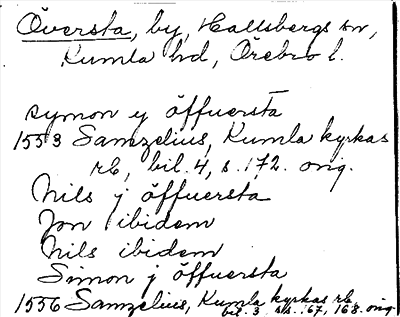 Översta, by, Hallsbergs sn,
Kumla hd, Örebro l.
symon y öffuersta
1553 Samzelius, Kumla kyrkas
rb, bil. 4, s. 172. orig.
Nils j öffuersta
Jon ibidem
Nils ibidem
Simon j öffuersta
1556 Samzelius, Kumla kyrkas rb,
bil. 3 ss. 167, 168. orig.